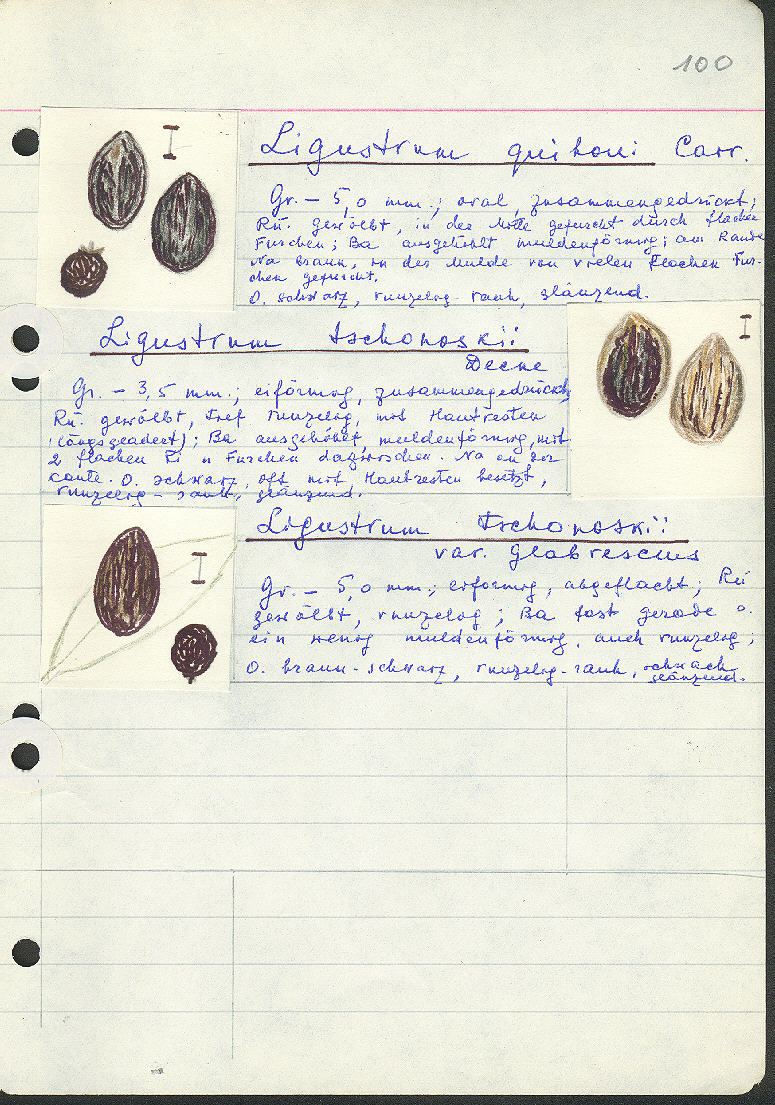 100
Ligustrum quihoui Carr.
Gr. - 5,0 mm.; oval, zusammengedrückt;
Rü. gewölbt, in der Mitte gefurcht durch flache
Furchen; Ba ausgehöhlt muldenförmig; am Rande
Na braun, in der Mulde von vielen flachen Fur-
chen gefurcht.
O. schwarz, runzelig-rauh, glänzend.
Ligustrum tschonoskii
Decne
Gr. - 3,5 mm.; eiförmig, zusammengedrückt,
Rü. gewölbt, tief runzelig, mit Hautresten
(längsgeadert); Ba ausgehölt, muldenförmig, mit
2 flachen Furchen dazwischen. Na an der
Kante. O. schwarz, oft mit Hautresten besetzt,
runzelig-rauh, glänzend.
Ligustrum tschonoskii
var. glabrescens
Gr. - 5,0 mm.; eiförmig, abgeflacht; Rü
gewölbt, runzelig; Ba fast gerade o.
ein wenig muldenförmig, auch runzelig;
O. braun-schwarz, runzelig-rauh, schwach
glänzend.